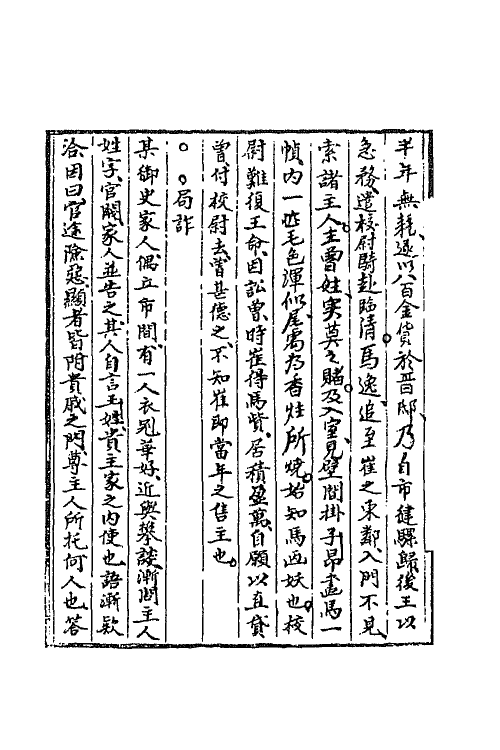 半年無耗遂以八百金貨於晋邸乃自市健騾歸後王以
急務遣校尉騎赴臨清馬逸追至崔之東鄰入門不見
索諸主人主曾姓实莫之睹及入室見壁間掛子昂画馬一
幀内一匹毛色渾似尾處為香炷所燒始知馬画妖也校
尉難復王命因訟曾時崔得馬貲居積盈萬自願以直貸
曾付校尉去曾甚德之不知崔即當年之售主也
局詐
某御史家人偶立市間有一人衣冠華好近與攀談漸問主人
姓字官閥家人並告之其人自言王姓貴主家之内使也語漸欵
洽因曰宦途險惡顯者皆附貴戚之門尊主人所托何人也答